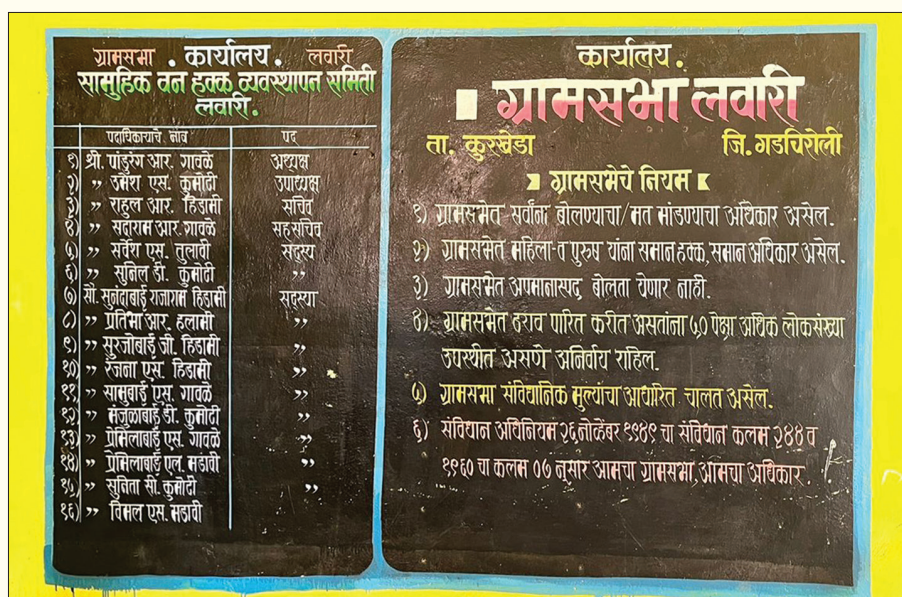 ग्रामसभा . कार्यालय . लवारी
सामुहिक वन हक्क व्यवस्थापन समिती
लवारी.
पदाधिकाऱ्याचे नांव पद
१) श्री. पांडुरंग आर. गावळे अध्यक्ष
२) ,, उमेश एस. कुमोटी उपाध्यक्ष
३) ,, राहुल आर. हिडामी सचिव
४) ,, सदाराम आर. गावळे सहसचिव
५) ,, सर्वेश एस. तुलावी सदस्य
६) ,, सुनिल डी. कुमोटी ,,
७) सौ. सुनंदाबाई राजाराम हिडामी सदस्या
८) ,, प्रतिभा आर. हलामी ,,
९) ,, सुरजोबाई जी. हिडामी ,,
१०) ,, रंजना एस. हिडामी ,,
११) ,, सामबाई एस. गावळे ,,
१२) ,, मंजुळाबाई डी. कुमोटी ,,
१३) ,, प्रेमिलाबाई एस. गावळे ,,
१४) ,, प्रेमिलाबाई एल. मडावी ,,
१५) ,, सुचिता सी. कुमोटी ,,
१६) ,, विमल एस. मडावी
कार्यालय.
ग्रामसभा लवारी
ता. कुरखेडा जि. गडचिरोली
ग्रामसभेचे नियम
१) ग्रामसभेत सर्वांना बोलण्याचा/मत मांडण्याचा अधिकार असेल.
२) ग्रामसभेत महिला-त पुरुष यांना समान हक्क, समान अधिकार असेल.
३) ग्रामसभेत अपमानास्पद बोलता येणार नाही.
४) ग्रामसभेत ठराव पारित करीत असतांना ५० पेक्षा अधिक लोकसंख्या
उपस्थीत असणे अनिर्वाय राहिल.
५) ग्रामसभा संविधानिक मुल्यांचा आधारित चालत असेल.
६) संविधान अधिनियम २६ नोव्हेंबर १९४९ चा संविधान कलम २४४ व
१९६० चा कलम ०७ नुसार आमचा ग्रामसभा, आमचा अधिकार.